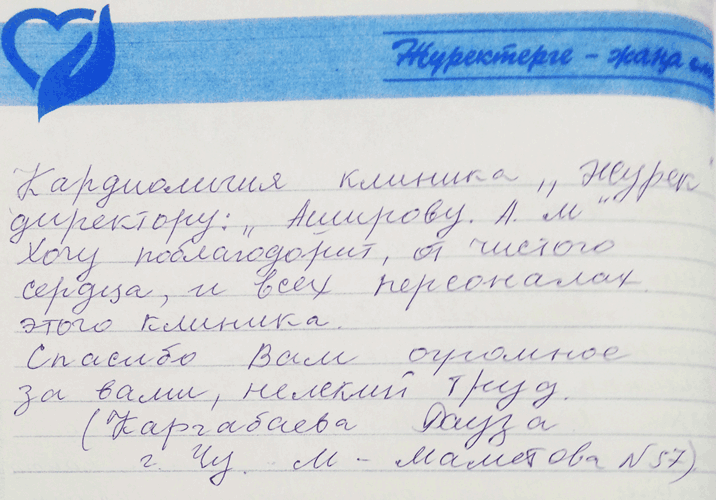 Журектерге - жаңа
Кардиолигия клиника „ Журек"
директору: „ Аширову. А. М "
Хочу поблагодорит, от чистого
сердца, и всех персоналах.
этого клиника.
Спасибо Вам огромное
за вами, нелский труд.
(Каргабаева Рауза
г. Чу. М - Маметова N 57)